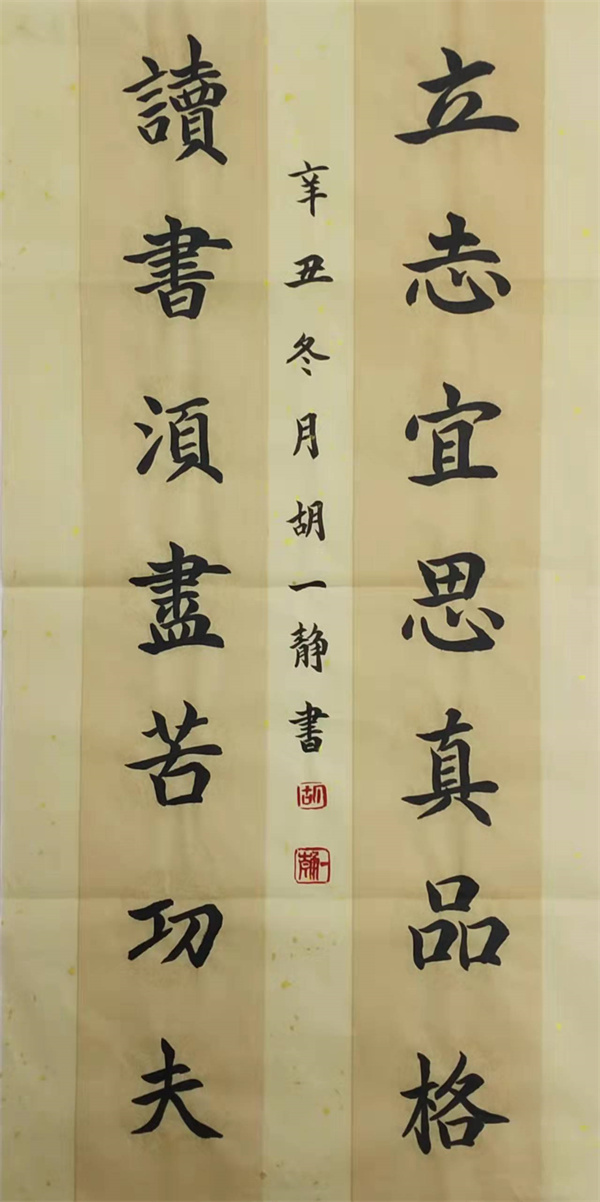 立志宜思真品格
讀書須盡苦功夫
辛丑冬月胡一静書
胡